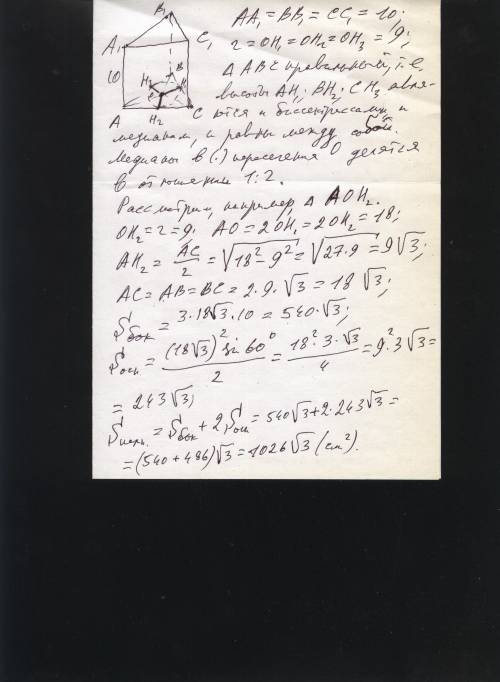 AA₁ = BB₁ = CC₁ = 10;
r = OH₁ = OH₂ = OH₃ = 9;
Δ ABC правильный, т.е.
высоты AH₁, BH₂, CH₃ явля-
ются и биссектрисами и
медианами, и равны между собой.
Медианы в (·) пересечения O делятся
в отношении 1:2.
Рассмотрим, например, Δ AOH₂.
OH₂ = r = 9; AO = 2OH₁ = 2OH₂ = 18;
AH₂ = AC/2 = √(18² − 9²) = √(27·9) = 9√3;
AC = AB = BC = 2·9·√3 = 18√3;
Sбок = 3·18√3·10 = 540·√3;
Sосн = (18√3)² sin 60°/2 = 18²·3·√3/4 = 9²·3√3 =
= 243√3;
Sполн. = Sбок + 2Sосн = 540√3 + 2·243√3 =
= (540 + 486)√3 = 1026√3 (см²).
B₁
A₁
C₁
10
B
H₃
H₁
A
H₂
C